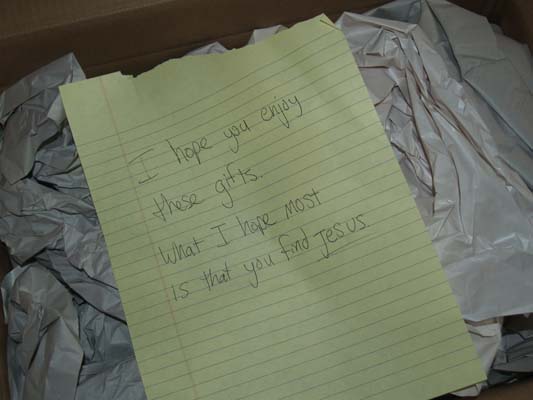 I hope you enjoy
these gifts.
What I hope most
is that you find Jesus